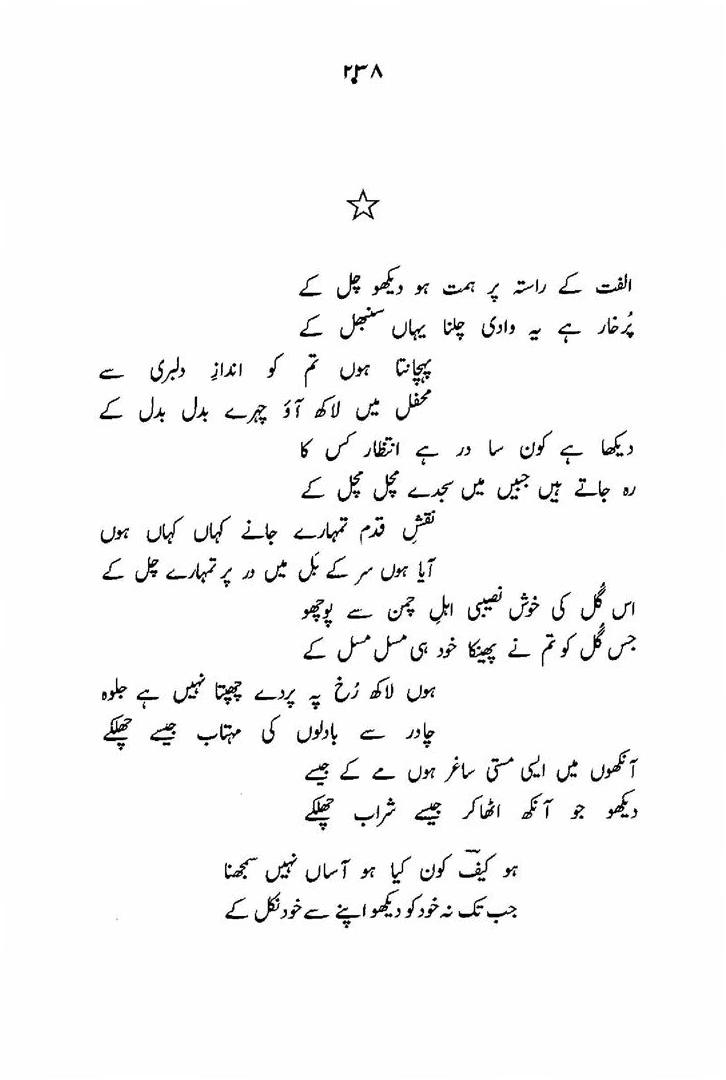 ۲۳۸
الفت کے راستہ پر ہمت ہو دیکھو چل کے
پُرخار ہے یہ وادی چلنا یہاں سنبھل کے
پہچانتا ہوں تم کو اندازِ دلبری سے
محفل میں لاکھ آؤ چہرے بدل بدل کے
دیکھا ہے کون سا در ہے انتظار کس کا
رہ جاتے ہیں جبیں میں سجدے مچل مچل کے
نقشِ قدم تمہارے جانے کہاں کہاں ہوں
آیا ہوں سر کے بَل میں در پر تمہارے چل کے
اس گُل کی خوش نصیبی اہلِ چمن سے پوچھو
جس گُل کو تم نے پھینکا خود ہی مسل مسل کے
ہوں لاکھ رُخ پہ پردے چھپتا نہیں ہے جلوہ
چادر سے بادلوں کی مہتاب جیسے چھلکے
آنکھوں میں ایسی مستی ساغر ہوں مے کے جیسے
دیکھو جو آنکھ اٹھاکر جیسے شراب چھلکے
ہو کیفؔ کون کیا ہو آساں نہیں سمجھنا
جب تک نہ خود کو دیکھو اپنے سے خود نکل کے